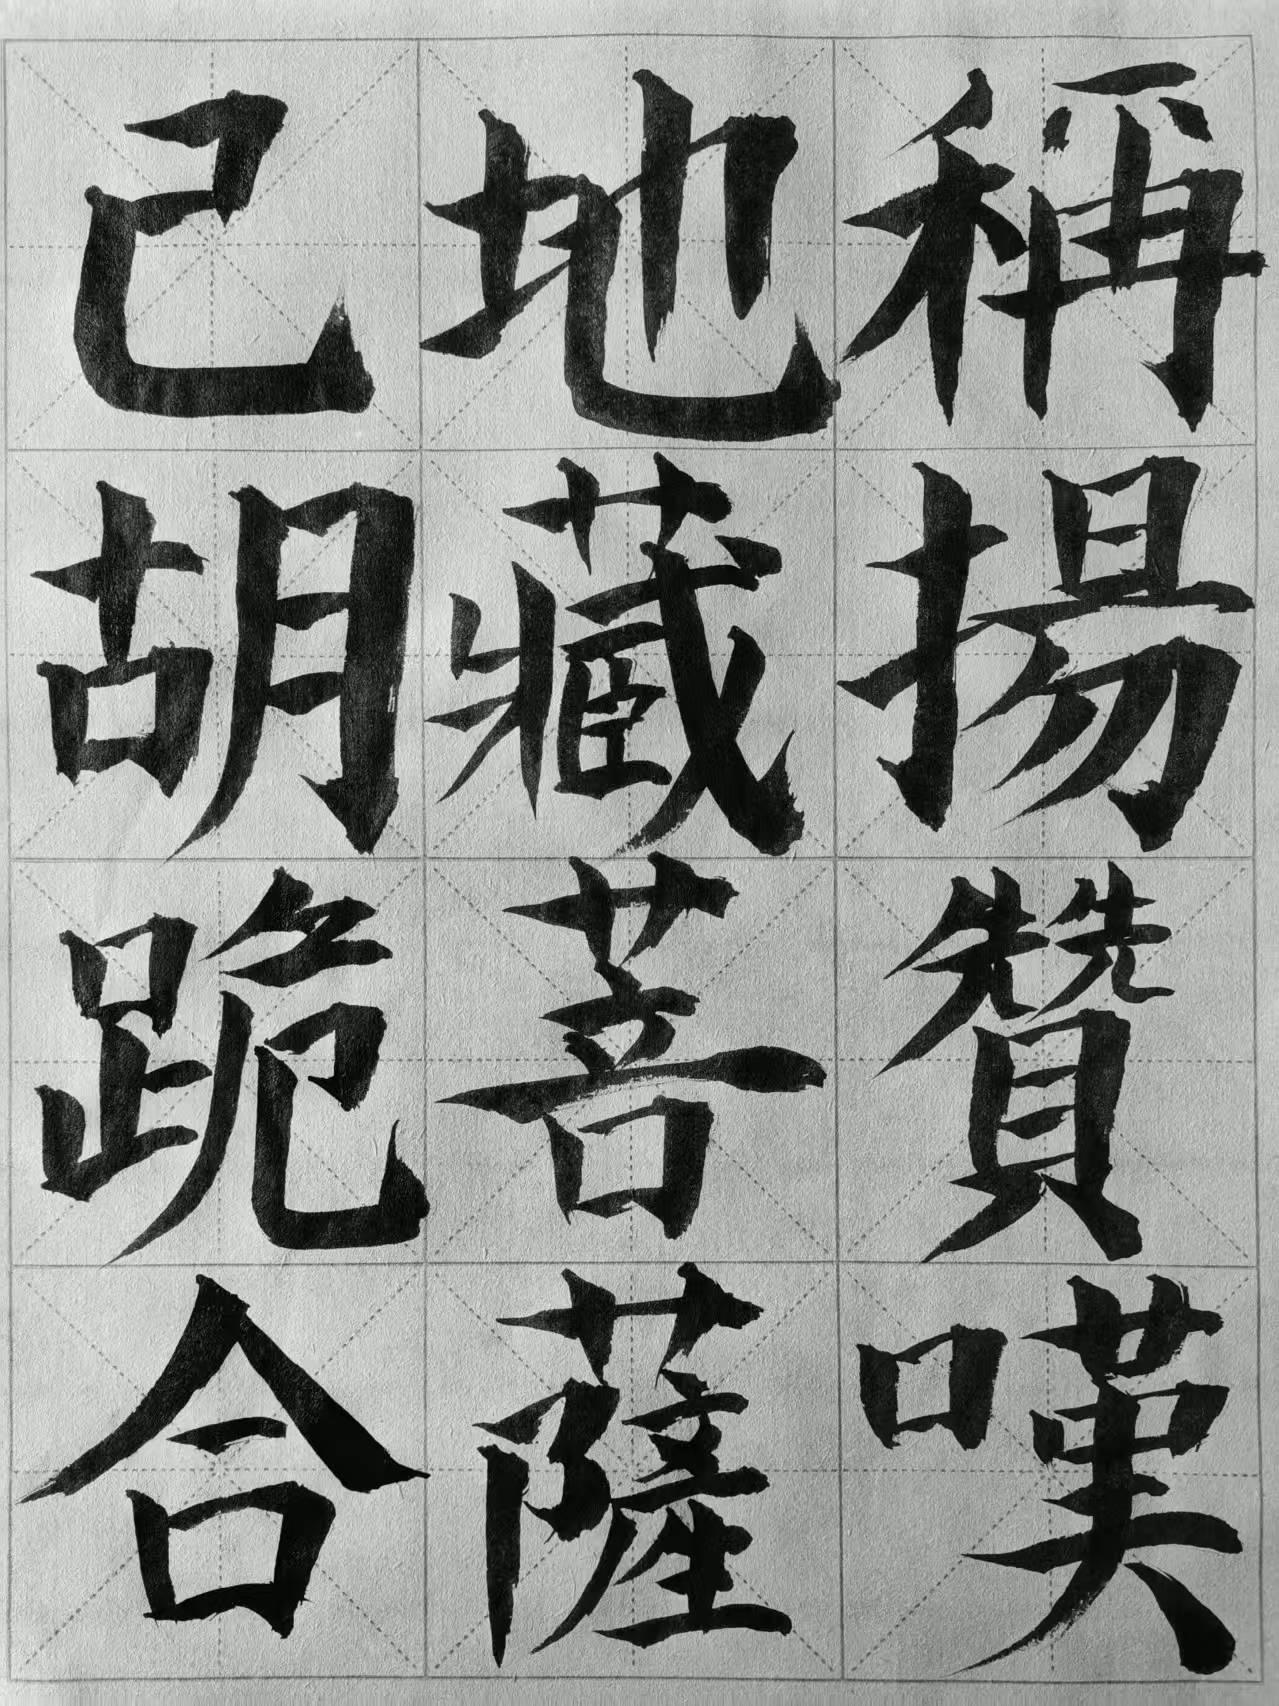 稱揚贊嘆
地藏菩薩
己胡跪合